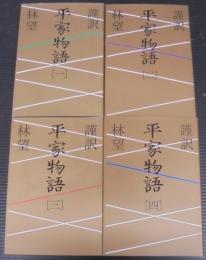 謹訳
平家物語
[一]
林望
謹訳
平家物語
[二]
林望
謹訳
平家物語
[三]
林望
謹訳
平家物語
[四]
林望